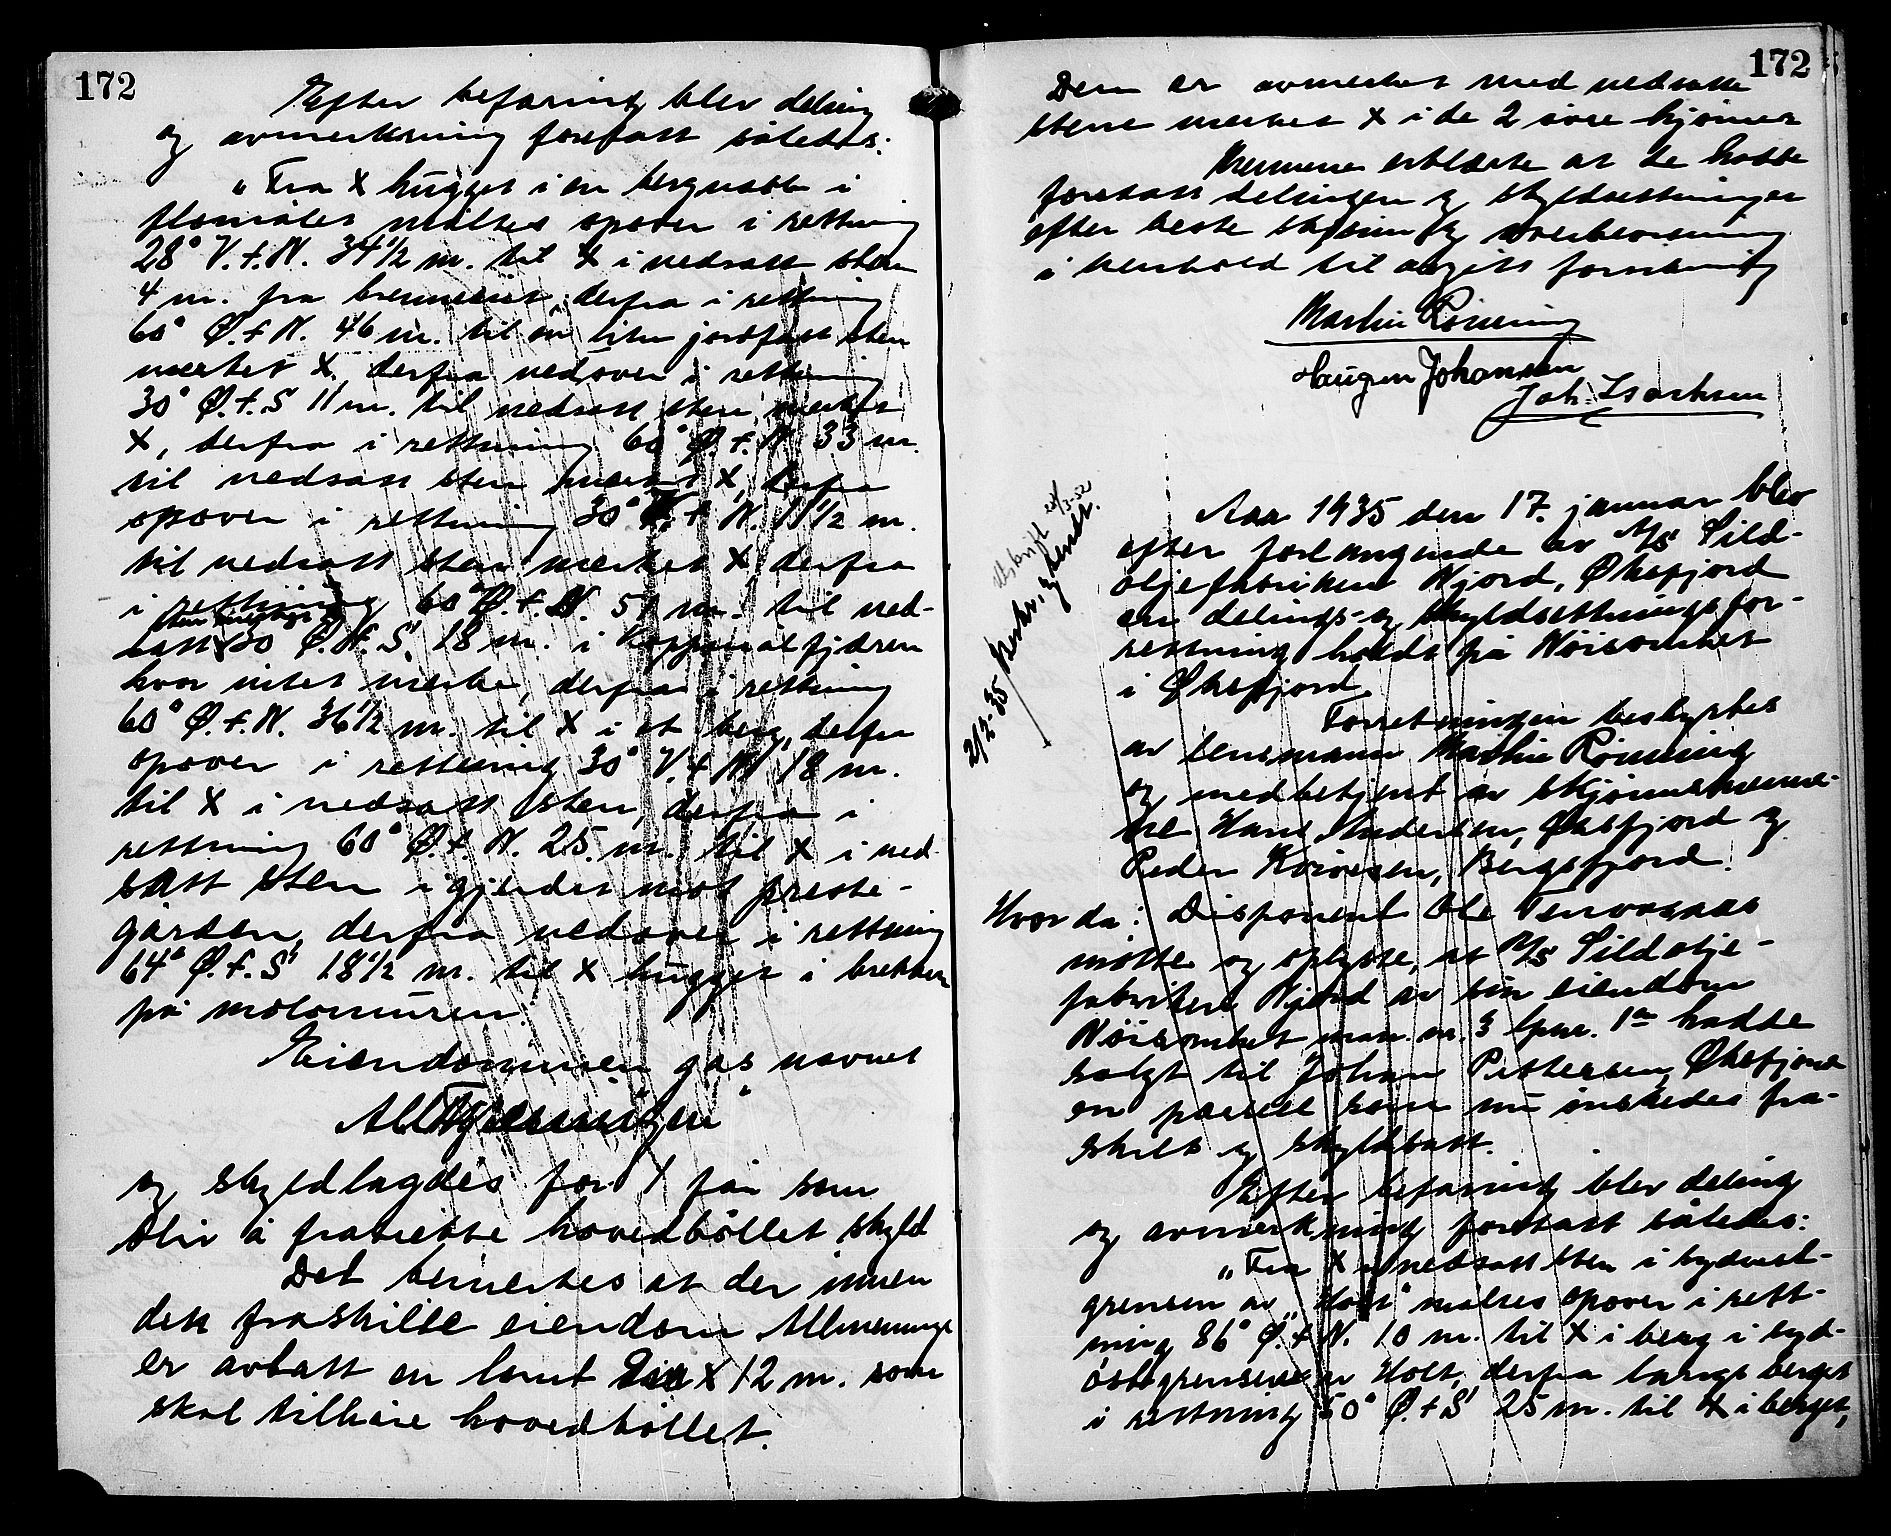 172
Efter befaring blev deling
og avmerkning foretatt således:
"Fra X hugget i en bergnabbe i
flomålet måltes opover i retning
28° V.f.N. 34½ m. til X i nedsatt sten
4 m. fra derfra i retning
60° Ø.f.N. 46 m. til en liten jordfast sten
merket X, derfra nedover i retning
30° Ø.f.S 11 m. til nedsatt sten merket
X, derfra i retning 60° Ø.f.N 33 m.
til nedsatt sten merket X derfra
opover i retning 30° V.f.N. 11½ m.
til nedsatt sten merket X derfra
i retning 60° Ø.f.N. 51 m. til ned-
satt 30 Ø.f.S. 18 m. i
hvor intet merke, derfra i retning
60° Ø.f.N. 36½ m. til X i et berg, derfra
opover i retning 30° V.f.N 18 m.
til X i nedsatt sten, derfra i
retning 60° Ø.f.N. 25 m. til X i ned-
satt sten i gjerdet mot preste-
gården, derfra nedover i retning
64° Ø.f.S 18½ m. til X hugget i brekken
på molomuren.
Eiendommen gas navnet
"
og skyldlagdes for 1 øre som
blir å fratrekke hovedbøllet skyld
Det bemerkes at der innen
den fraskilte eiendom
er avsatt en tomt X 12 m. som
skal tilhøre hovedbøllet.
172
Den er avmerket med nedsatte
stene merket X i de 2 øvre hjørner
Mennene erklærte at de hadde
foretatt delingen og skyldsettningen
efter beste skjønn og overbevisning
i henhold til avgitt forsikring
Martin Rönning
Haugen Johansen
Joh. Isaksen
Aar 1935 den 17. januar blev
efter forlangende av A/S Sild-
oljefabrikken Njord, Øksfjord
en delings- og skyldsettningsfor-
retning holdt på Nöisomhet
i Øksfjord.
2/2-35
Forretningen bestyrtes
av lensmann Martin Rönning
og medbetjent av skjönnsmenne-
ne Hans Andersen, Øksfjord og
Peder Bergsfjord.
Hvor da: Disponent Ole
møtte og oplyste, at A/S Sildolje-
fabrikken Njord av sin eiendom
Nöisomhet matr. nr. 3 lpnr. 1a hadde
solgt til Johan Pettersen, Øksfjord
en parsell som nu ønskedes fra-
skilt og skyldsatt.
Efter befaring blev deling
og avmerkning foretatt således:
"Fra X i nedsatt sten i sydvest-
grensen av "Holt" måltes opover i rett-
ning 86° Ø.f.N. 10 m. til X i berg i syd-
østgrensen av Holt, derfra langs berget
i retning 50° Ø.f.S 25 m. til X i berget,